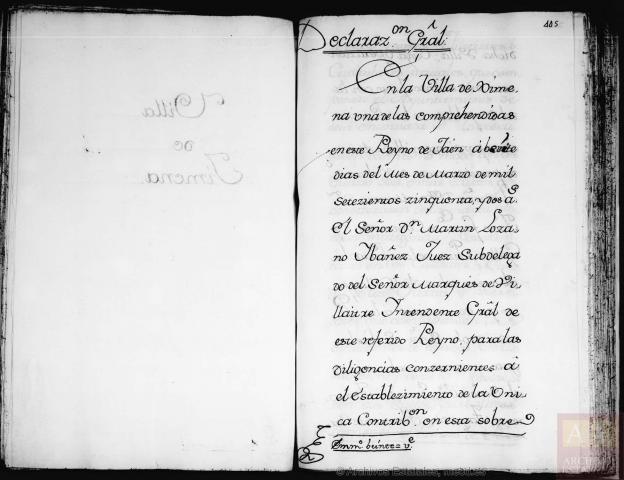 Villa
de
Ximena
445
Declaraz.on Grâl.
En la Villa de Xime,
na una de las comprehendidas
en este Reyno de Jaén á beinte
dias del Mes de Marzo de mil
setezientos zinquenta, y dos a.s
El Señor D.n Martin Loza,
no Ibañez Juez Subdelega
do del Señor Marqués de Vi,
llaitre Intendente Grâl de
este referido Reyno, para las
diligencias conzernientes á
el establezimiento de la Uni
ca Contrib.on en esta sobre
Enm.do beinte = v.e
© Archivos Estatales, mecd.es